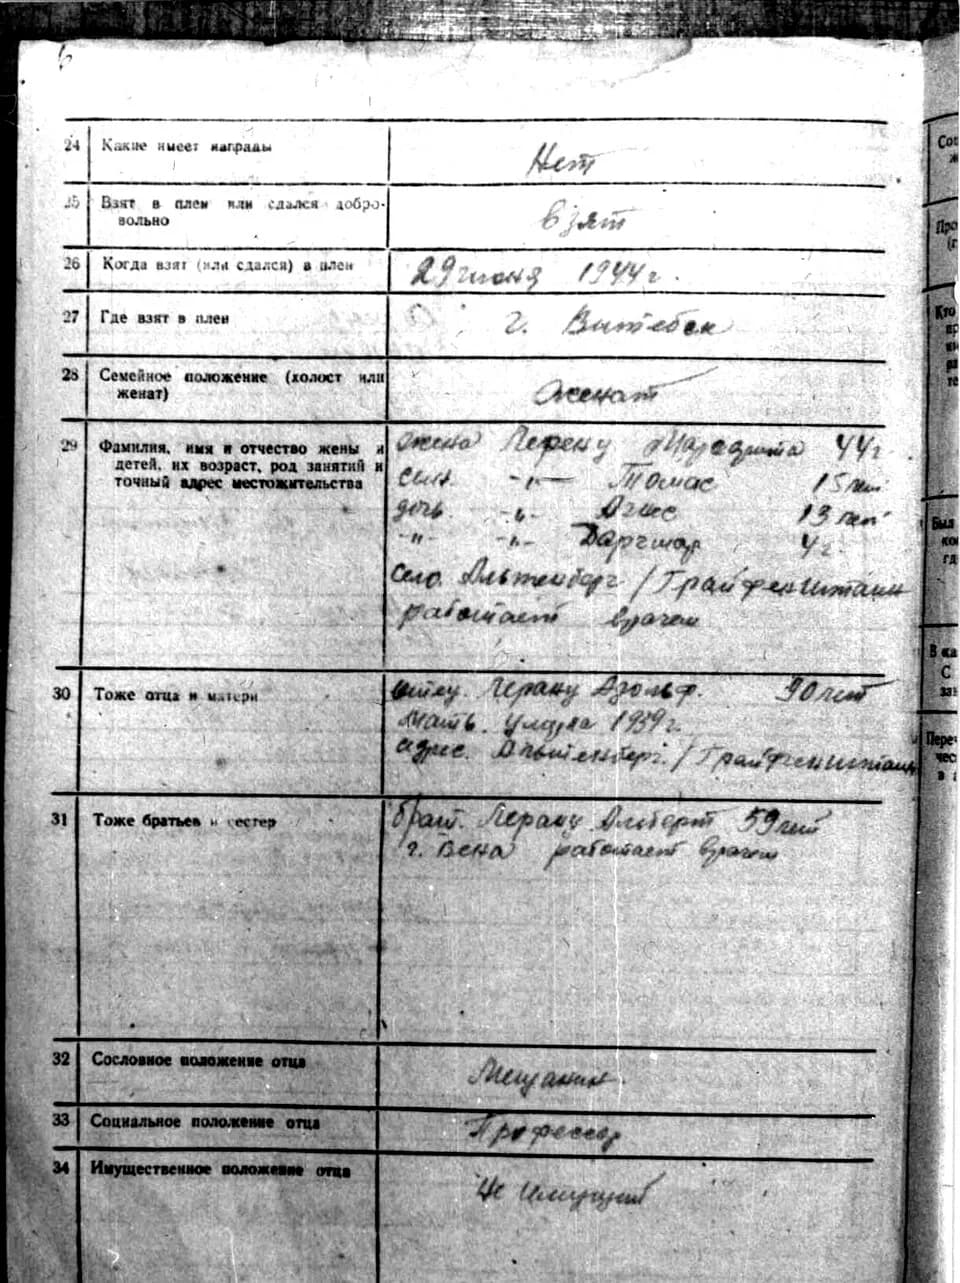 6
24 Какие имеет награды Нет
25 Взят в плен или сдался добро-
вольно Взят
26 Когда взят (или сдался) в плен 29 июня 1944 г.
27 Где взят в плен г. Витебск
28 Семейное положение (холост или
женат) Женат
29 Фамилия, имя и отчество жены и
детей, их возраст, род занятий и
точный адрес местожительства
жена 44 г.
сын -"- Томас 15 лет
дочь -"- Агнес 13 лет
-"- -"- Дагмар 4 г.
село Альтенберг / Грайфенштайн
работает врачем
30 Тоже отца и матери
отец 90 лет
мать. 1939 г.
адрес. Альтенберг / Грайфенштайн
31 Тоже братьев и сестер
брат. Альберт 59 лет
г. Вена работает врачем
32 Сословное положение отца Мещанин
33 Социальное положение отца Профессор
34 Имущественное положение отца Не имущий
Сос
Про
(г
Кто
пр
те
Был
ко
гд
В ка
С
за
Пере
чес
в